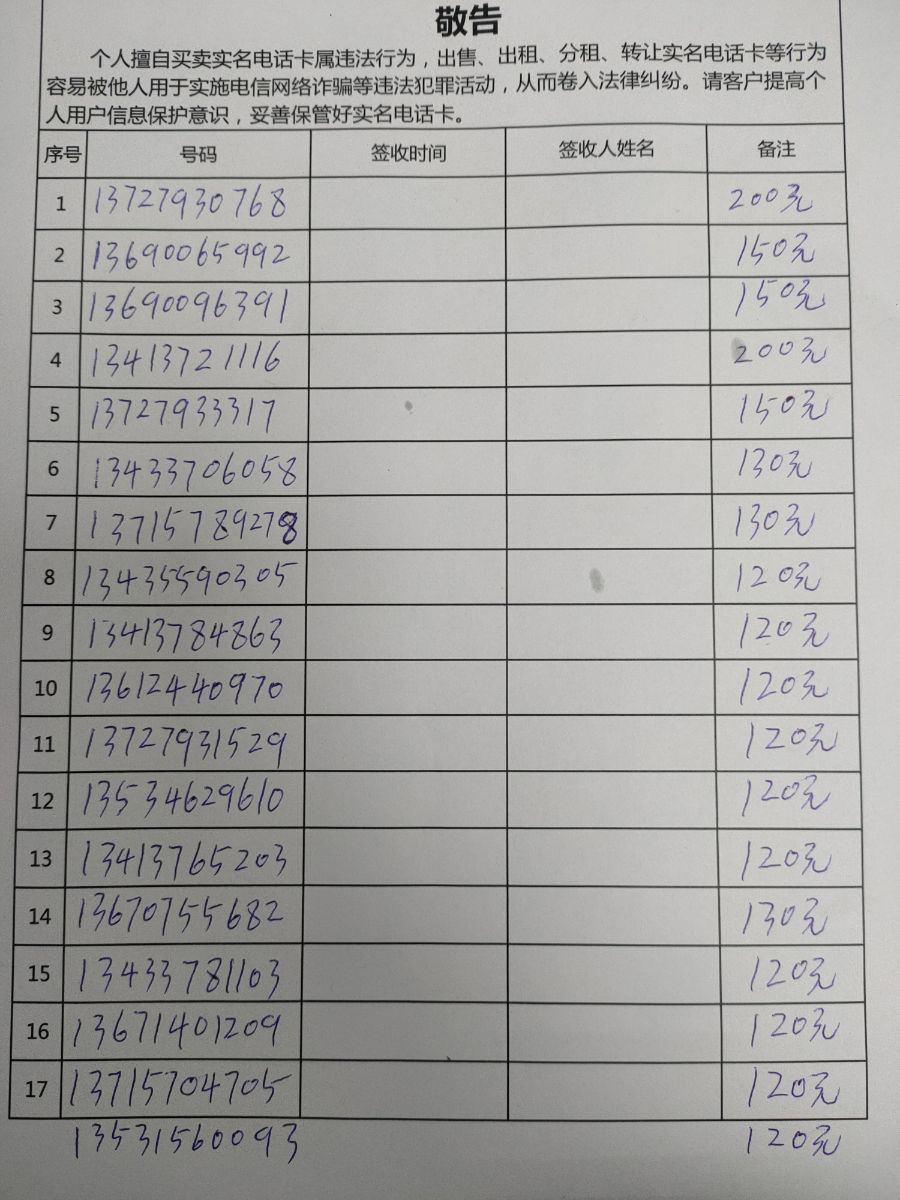 敬告
个人擅自买卖实名电话卡属违法行为，出售、出租、分租、转让实名电话卡等行为
容易被他人用于实施电信网络诈骗等违法犯罪活动，从而卷入法律纠纷。请客户提高个
人用户信息保护意识，妥善保管好实名电话卡。
序号 号码 签收时间 签收人姓名 备注
1 13727930768 200元
2 13690065992 150元
3 13690096391 150元
4 13413721116 200元
5 13727933317 150元
6 13433706058 130元
7 13715789278 130元
8 13435590305 120元
9 13413784863 120元
10 13612440970 120元
11 13727931529 120元
12 13534629610 120元
13 13413765203 120元
14 13670755682 130元
15 13433781103 120元
16 13671401209 120元
17 13715704705 120元
13531560093 120元